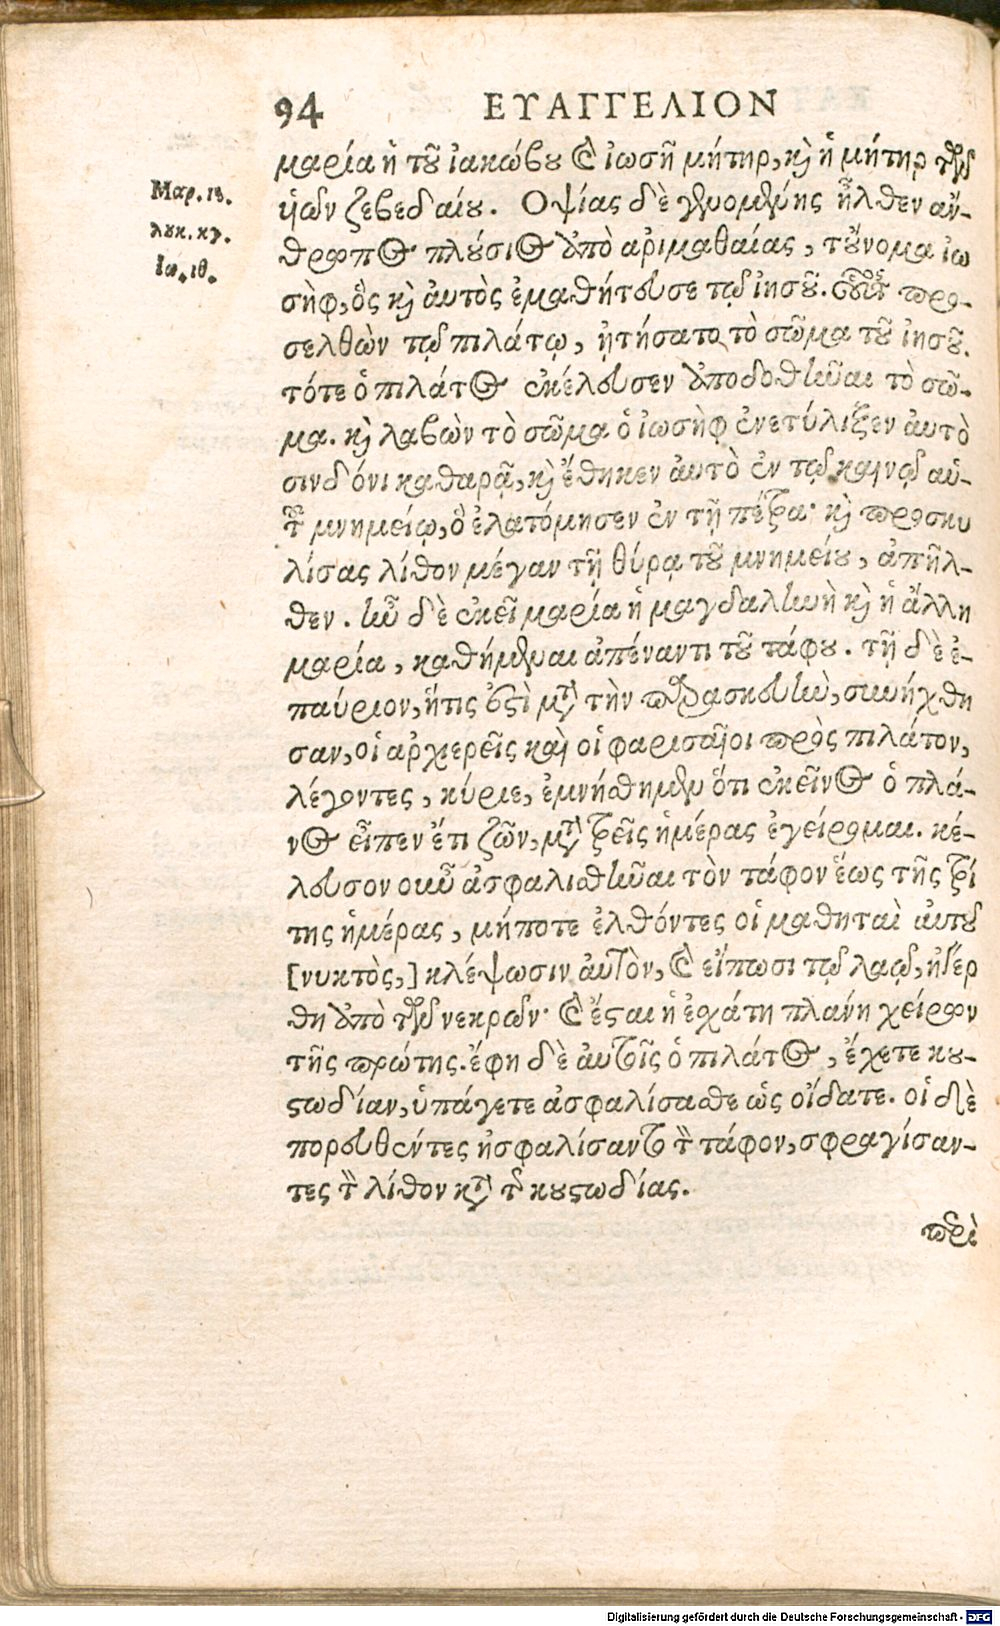 94 ΕΥΑΓΓΕΛΙΟΝ
μαρία ἡ τοῦ ἰακώβου καὶ ἰωσῆ μήτηρ, καὶ ἡ μήτηρ τῶν
Μαρ. ιε.
ὑῶν ζεβεδαίου. Οψίας δὲ γενομένης ἦλθεν ἄν-
λουκ. κγ.
θρωπος πλούσιος ἀπὸ αριμαθαίας, τοὔνομα ἰω
Ιω. ιθ.
σὴφ, ὃς καὶ ἀυτὸς ἐμαθήτευσε τῷ ἰησοῦ. οὗτος προ-
σελθὼν τῷ πιλάτῳ, ᾐτήσατο τὸ σῶμα τοῦ ἰησοῦ.
τότε ὁ πιλάτος ἐκέλευσεν ἀποδοθῆναι τὸ σῶ-
μα. καὶ λαβὼν τὸ σῶμα ὁ ἰωσὴφ ἐνετύλιξεν ἀυτὸ
σινδόνι καθαρᾷ, καὶ ἔθηκεν ἀυτὸ ἐν τῷ καινῷ αὐ-
τοῦ μνημείῳ, ὃ ἐλατόμησεν ἐν τῇ πέτρα· καὶ προσκυ
λίσας λίθον μέγαν τῇ θύρᾳ τοῦ μνημείου, ἀπῆλ-
θεν. ἦν δὲ ἐκεῖ μαρία ἡ μαγδαληνὴ καὶ ἡ ἄλλη
μαρία, καθήμεναι ἀπέναντι τοῦ τάφου. τῇ δὲ ἐ-
παύριον, ἥτις ἐστὶ μετὰ τὴν παρασκευὴν, συνήχθη
σαν, οἱ αρχιερεῖς καὶ οἱ φαρισαῖοι πρὸς πιλάτον,
λέγοντες, κύριε, ἐμνήσθημεν ὅτι ἐκεῖνος ὁ πλά-
νος εἶπεν ἔτι ζῶν, μετὰ τρεῖς ἡμέρας ἐγείρομαι. κέ-
λευσον οὖν ἀσφαλισθῆναι τὸν τάφον ἕως τῆς τρί
της ἡμέρας, μήποτε ἐλθόντες οἱ μαθηταὶ αὐτοῦ
[νυκτὸς,] κλέψωσιν ἀυτὸν, καὶ εἴπωσι τῷ λαῷ, ἠγέρ
θη ἀπὸ τῶν νεκρῶν· καὶ ἔσται ἡ ἐσχάτη πλάνη χείρων
τῆς πρώτης. ἔφη δὲ ἀυτοῖς ὁ πιλάτος, ἔχετε κου-
στωδίαν, ὑπάγετε ἀσφαλίσασθε ὡς οἴδατε. οἱ δὲ
πορευθέντες ἠσφαλίσαντο τὸν τάφον, σφραγίσαν-
τες τὸν λίθον μετὰ τῆς κουστωδίας.
περὶ
Digitalisierung gefördert durch die Deutsche Forschungsgemeinschaft - DFG